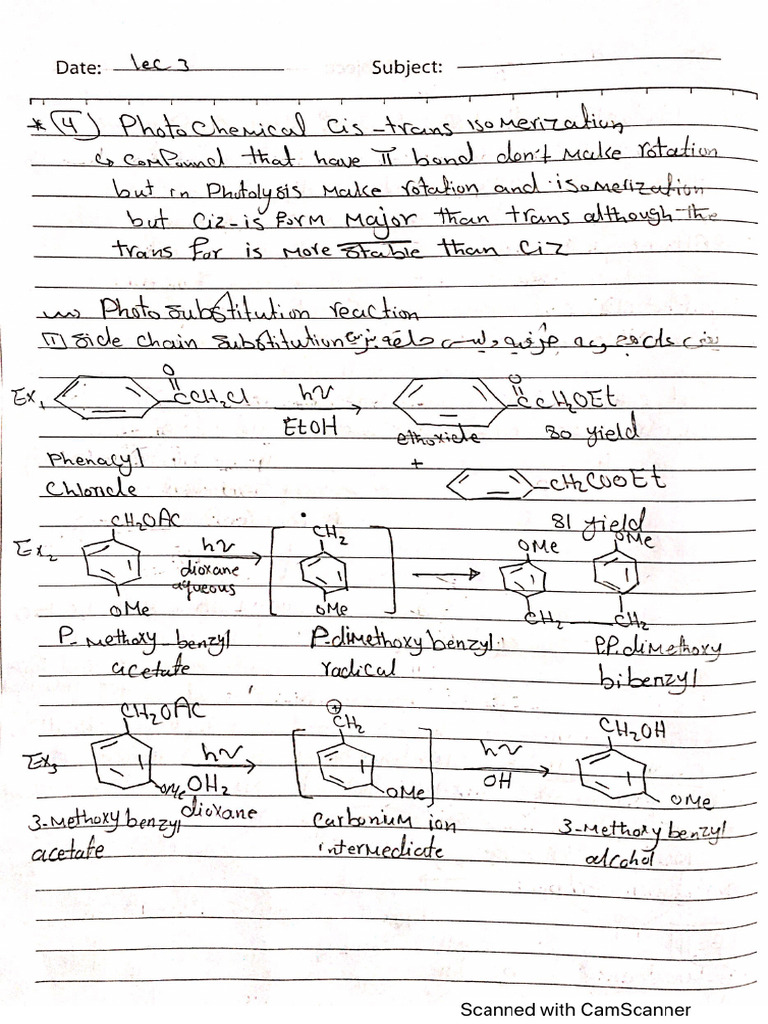 Date: lec 3 Subject:
* (4) PhotoChemical Cis-trans isomerization
↳ ComPound that have π bond don't Make rotation
but in Photolysis Make rotation and isomerization
but Ciz-is form Major than trans although the
trans for is More stable than Ciz
Photo substitution reaction
(1) side chain substitution
Ex1 O CCH2Cl hν EtOH O CCH2OEt
ethoxide 80 yield
Phenacyl Chloride + CH2COOEt
81 yield
Ex2 CH2OAC OMe hν dioxane aqueous CH2 OMe OMe OMe CH2 CH2
P-Methoxy benzyl acetate P-dimethoxy benzyl radical P.P.dimethoxy bibenzyl
Ex3 CH2OAC OMe hν OH2 dioxane ⊕ CH2 OMe hν OH CH2OH OMe
3-Methoxy benzyl acetate Carbonium ion intermediate 3-Methoxy benzyl alcohol
Scanned with CamScanner